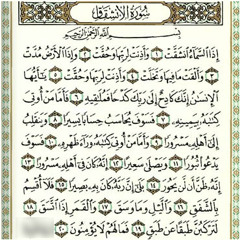 سورة الانشقاق
بسم الله الرحمن الرحيم
إذا السماء انشقت ١ وأذنت لربها وحقت ٢ وإذا الأرض مدت
٣ وألقت ما فيها وتخلت ٤ وأذنت لربها وحقت ٥ يأيها
الإنسن إنك كادح إلى ربك كدحا فملقيه ٦ فأما من أوتي
كتبه بيمينه ٧ فسوف يحاسب حسابا يسيرا ٨ وينقلب
إلى أهله مسرورا ٩ وأما من أوتي كتبه وراء ظهره ١٠ فسوف
يدعوا ثبورا ١١ ويصلى سعيرا ١٢ إنه كان في أهله مسرورا ١٣
إنه ظن أن لن يحور ١٤ بلى إن ربه كان به بصيرا ١٥ فلا أقسم
بالشفق ١٦ واليل وما وسق ١٧ والقمر إذا اتسق ١٨
لتركبن طبقا عن طبق ١٩ فما لهم لا يؤمنون ٢٠